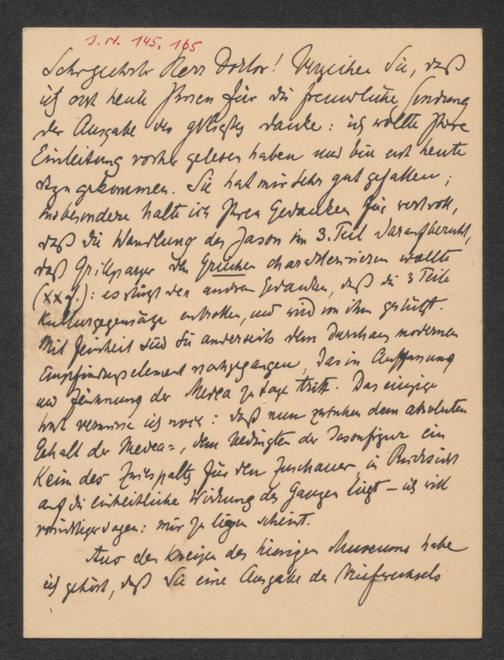 J. N. 145.165
Sehr geehrter Herr Doktor! Verzeihen Sie, daß
ich erst heute Ihnen für die freundliche Sendung
der Ausgabe des danke: ich wollte Ihre
Einleitung vorher gelesen haben und bin erst heute
dazu gekommen. Sie hat mir sehr gut gefallen;
insbesondere halte ich Ihren Gedanken für wertvoll,
daß die Wandlung des Jason im 3. Teil darauf beruht,
daß Grillparzer den Griechen charakterisieren wollte
(XX f.): es stützt den andren Gedanken, daß die 3 Teile
Kulturgegensätze enthalten, und wird von ihm gestützt.
Mit Feinheit sind Sie anderseits dem durchaus modernen
Empfindungselement nachgegangen, das in Auffassung
und Zeichnung der Medea zu tage tritt. Das einzige
vermisse ich noch: daß nun zwischen dem absoluten
Gehalt der Medea=, dem bedingten der Jasonfigur ein
Keim des Zwiespalts für den Zuschauer in Rücksicht
auf die einheitliche Wirkung des Ganzen liegt – ich will
vorsichtiger sagen: mir zu liegen scheint.
Aus den Kreisen des hiesigen Museums habe
ich gehört, daß Sie eine Ausgabe des Briefwechsels